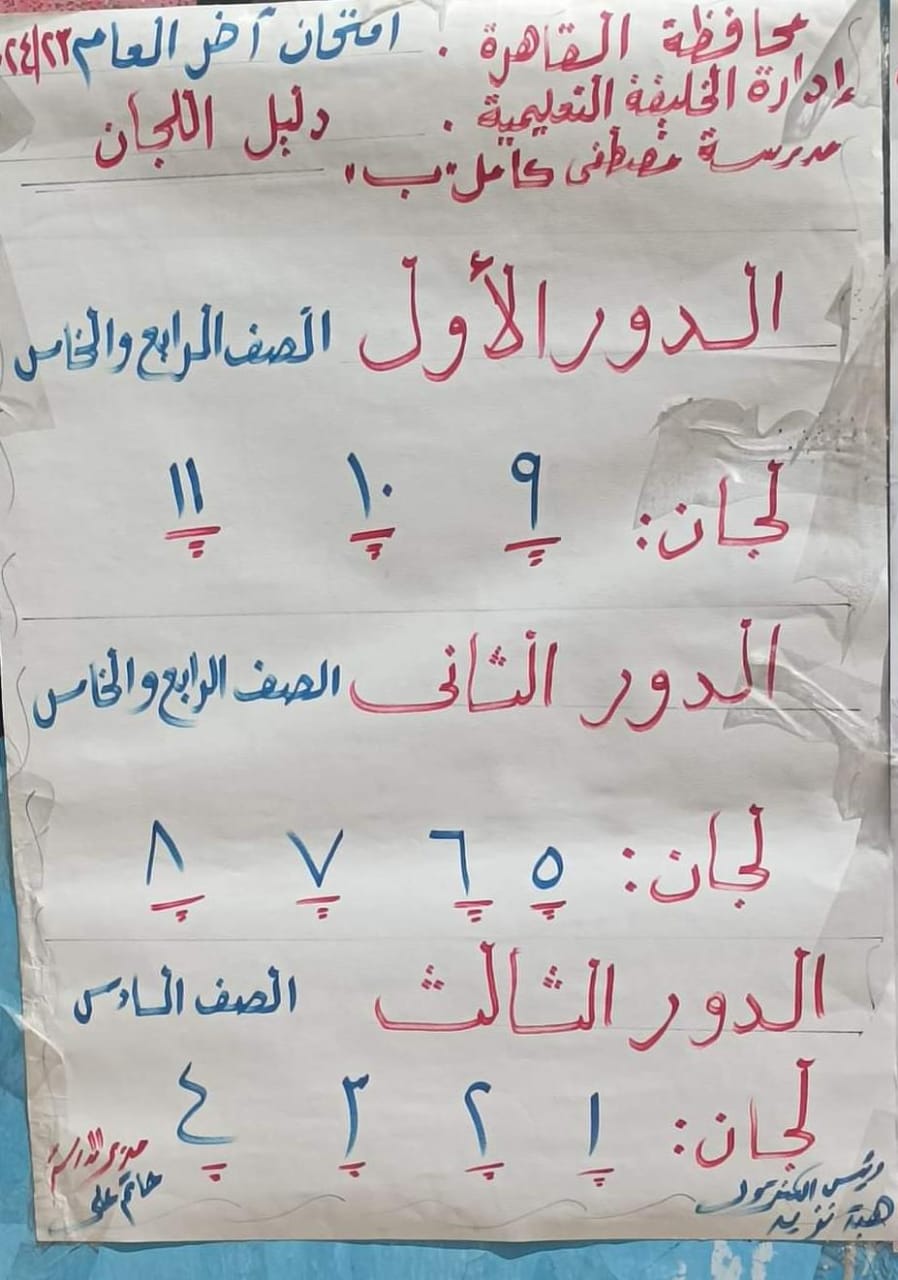 محافظة القاهرة .
إدارة الخليفة التعليمية .
مدرسة مصطفى كامل "ب"
امتحان آخر العام ٢٤/٢٣
دليل اللجان
الدور الأول الصف الرابع والخامس
لجان: ٩ ١٠ ١١
الدور الثانى الصف الرابع والخامس
لجان: ٥ ٦ ٧ ٨
الدور الثالث الصف السادس
لجان: ١ ٢ ٣ ٤
رئيس الكنترول
هبة
مدير المدرسة
حاتم على